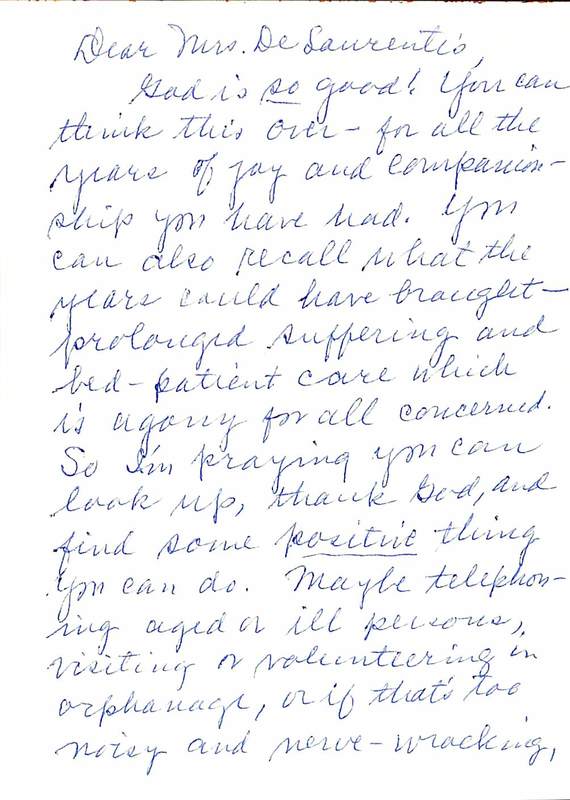 Dear Mrs. De Laurentis,
God is so good! You can
think this over - for all the
years of joy and companion-
ship you have had. You
can also recall what the
years could have brought -
prolonged suffering and
bed-patient care which
is agony for all concerned.
So I'm praying you can
look up, thank God, and
find some positive thing
you can do. Maybe telephon-
ing aged or ill persons,
visiting or volunteering in
orphanage, or if that's too
noisy and nerve-wracking,